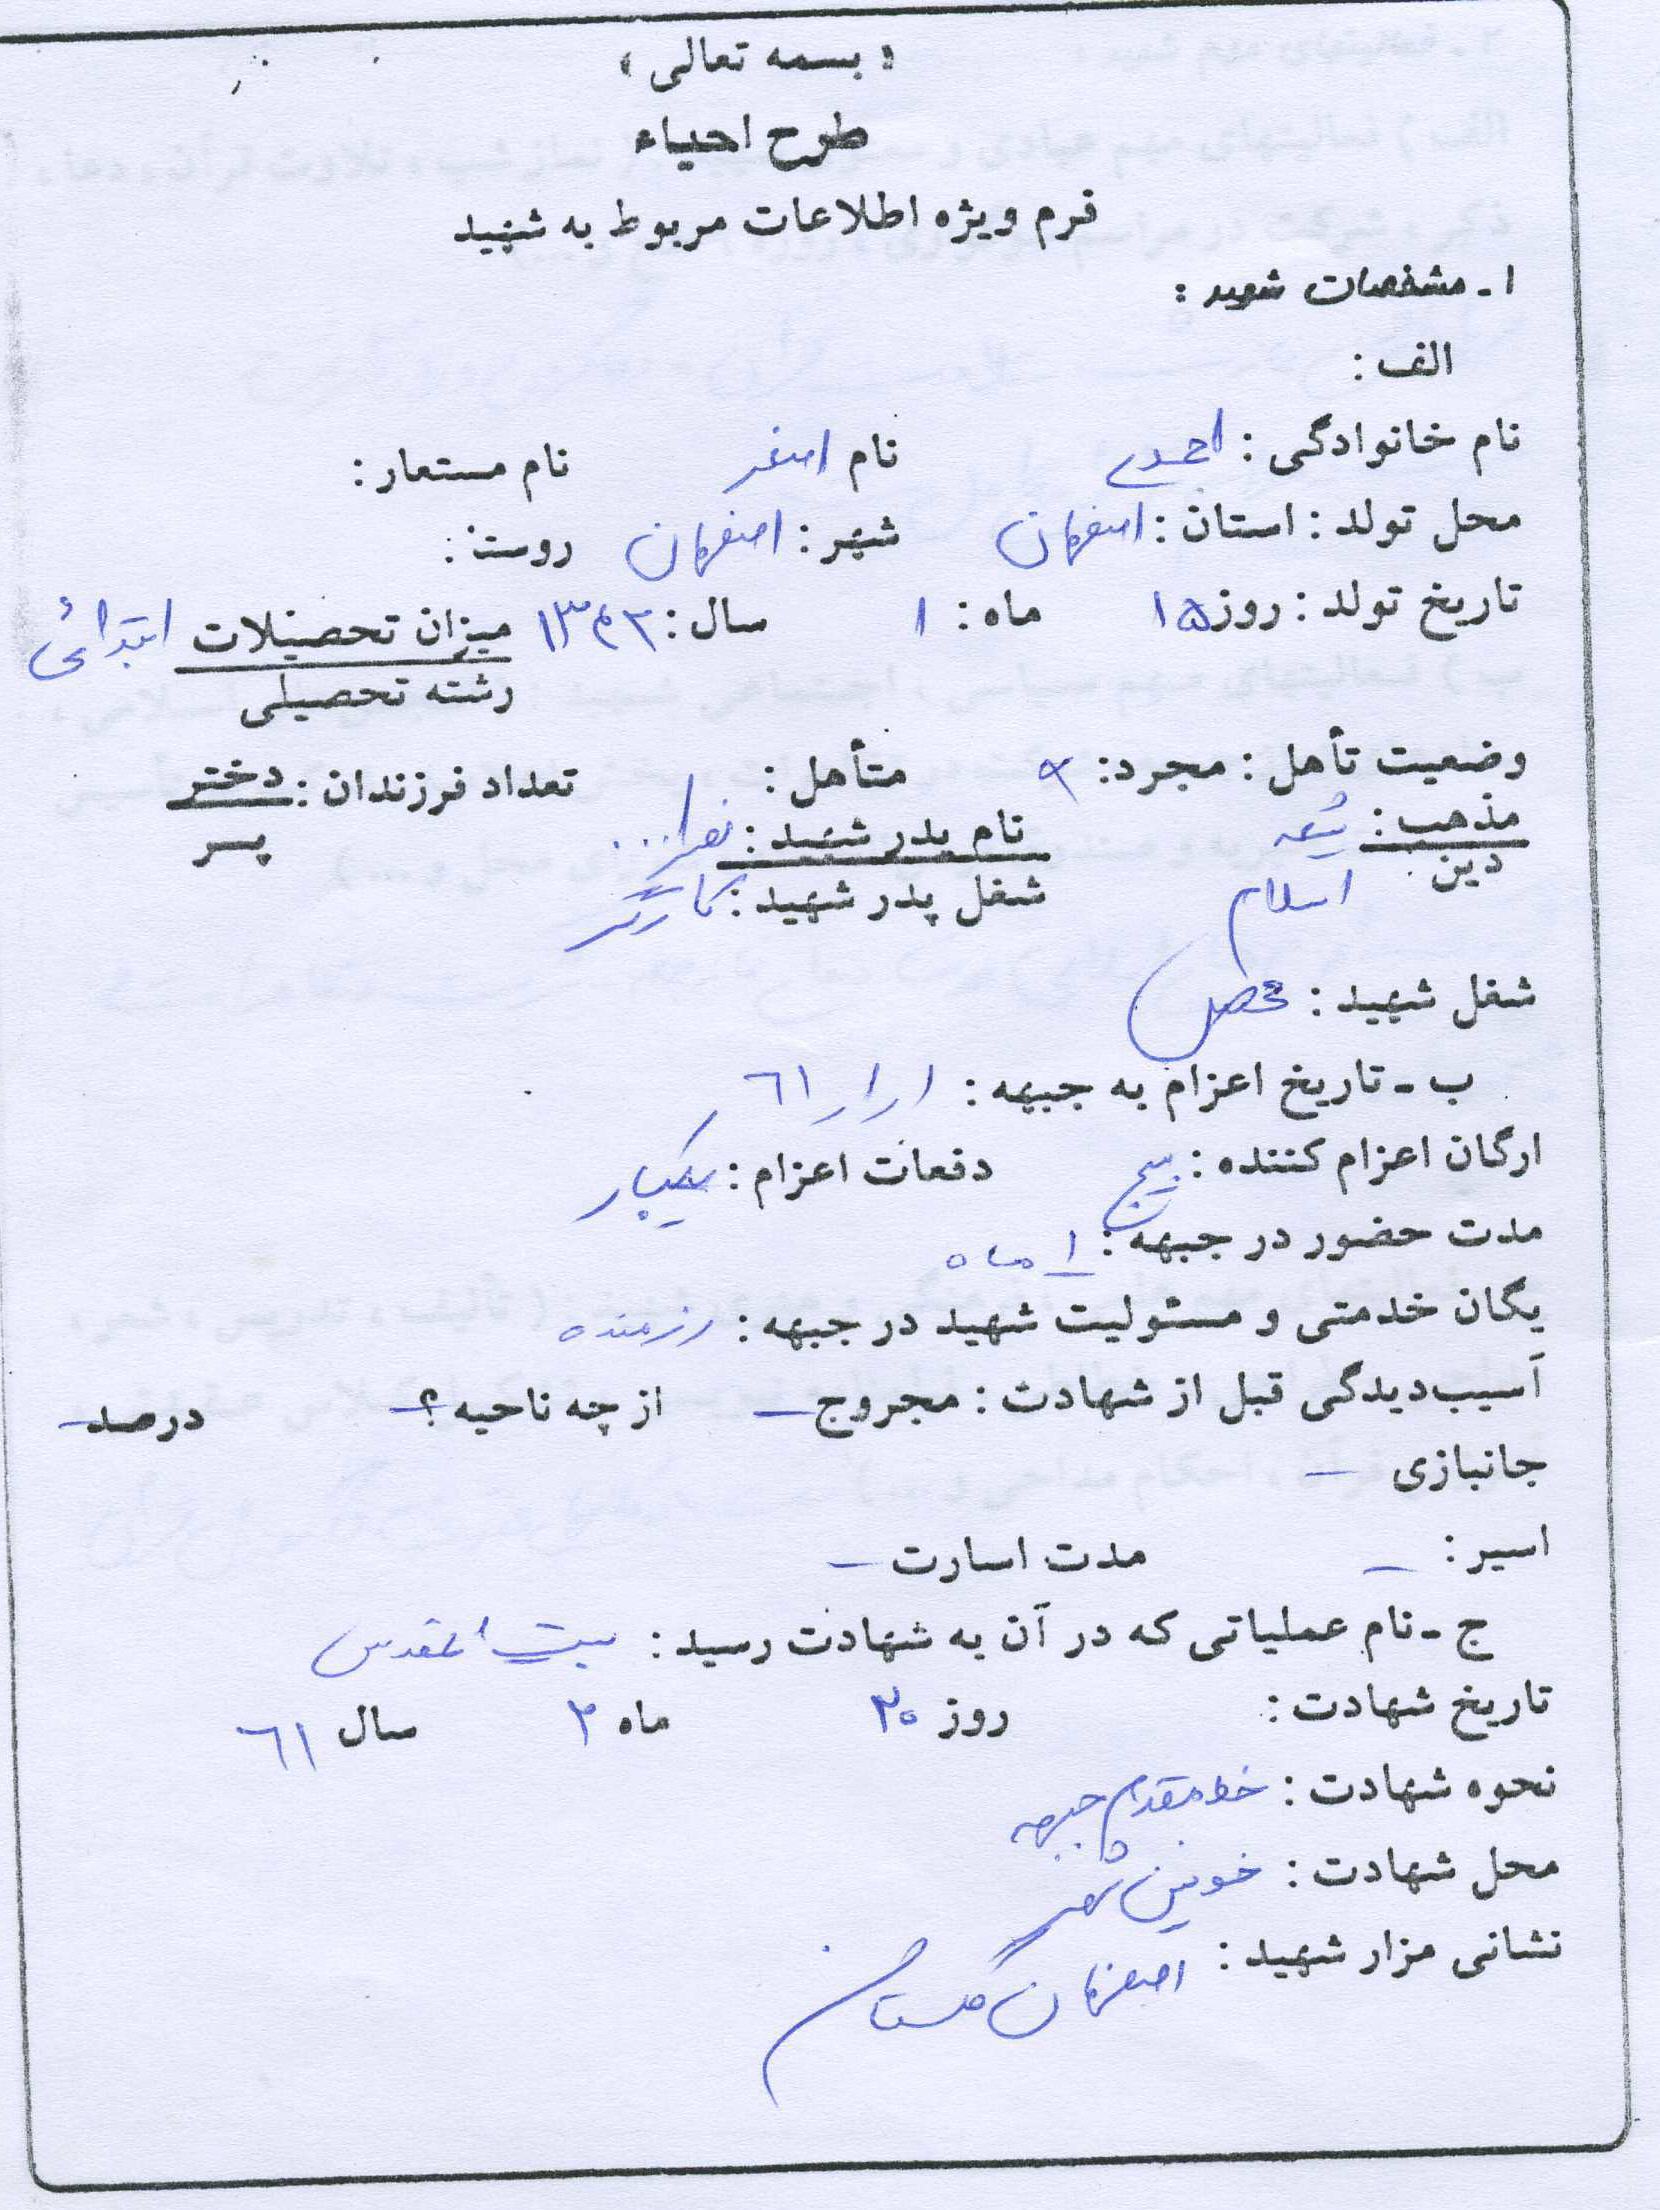 « بسمه تعالی »
طرح احیاء
فرم ویژه اطلاعات مربوط به شهید
۱ـ مشخصات شهید :
الف :
نام خانوادگی : احمدی نام اصغر نام مستعار :
محل تولد : استان : اصفهان شهر : اصفهان روستا :
تاریخ تولد : روز ۱۵ ماه : ۱ سال : ۱۳۴۲ میزان تحصیلات ابتدائی
رشته تحصیلی
وضعیت تأهل : مجرد : متأهل : تعداد فرزندان : دختر
پسر
مذهب : شیعه نام پدر شهید :
دین : اسلام شغل پدر شهید : کارگر
شغل شهید : محصل
ب ـ تاریخ اعزام به جبهه : ۱ ر ۱ ر ۶۱
ارگان اعزام کننده : بسیج دفعات اعزام : یکبار
مدت حضور در جبهه : ۱ ماه
یگان خدمتی و مسئولیت شهید در جبهه : رزمنده
آسیب‌دیدگی قبل از شهادت : مجروح ـ از چه ناحیه ؟ ـ درصد ـ
جانبازی ـ
اسیر : ـ مدت اسارت ـ
ج ـ نام عملیاتی که در آن به شهادت رسید : بیت المقدس
تاریخ شهادت : روز ۲۰ ماه ۲ سال ۶۱
نحوه شهادت : خط مقدم جبهه
محل شهادت : خونین شهر
نشانی مزار شهید : اصفهان گلستان